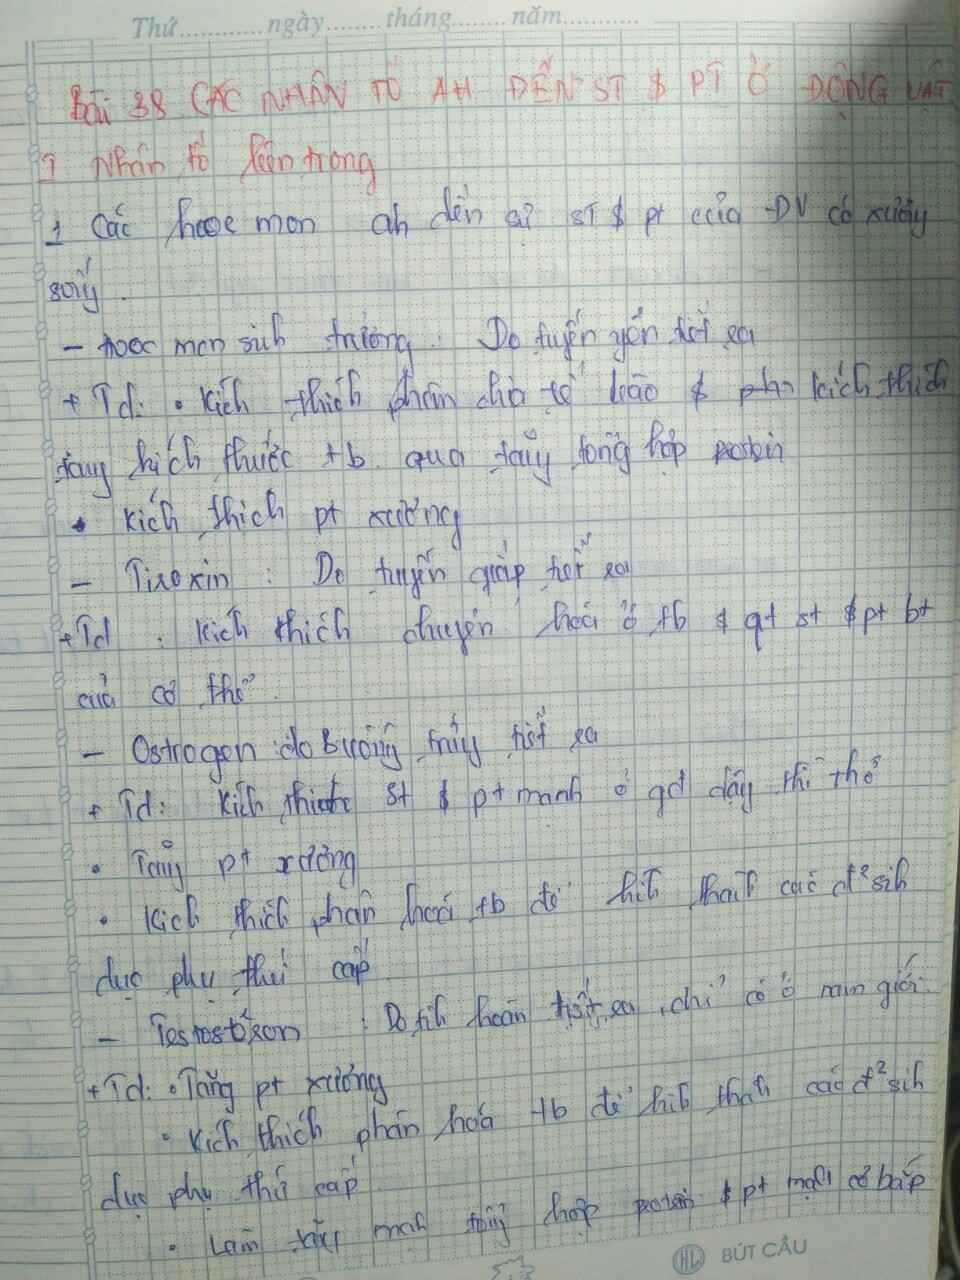 Thứ............ngày........tháng........năm...........
Bài 38 CÁC NHÂN TỐ AH ĐẾN ST $ PT Ở ĐỘNG VẬT
I Nhân tố bên trong
1 Các hooc mon ah đến sự ST $ pt của ĐV có xương
sống
- Hooc mon sinh trưởng. Do tuyến yên tiết ra
+ Td: • Kích thích phân chia tế bào $ kích thích
tăng kích thước tb qua tăng tổng hợp protein
• Kích thích pt xương
- Tiroxin : Do tuyến giáp tiết ra
+ Td : Kích thích chuyển hoá ở tb $ qt st $ pt bt
của cơ thể
- Ostrogen : do Buồng trứng tiết ra
+ Td: Kích thích st $ pt mạnh ở gđ dậy thì
• Tăng pt xương
• Kích thích phân hoá tb để hình thành các đ² sinh
dục phụ thứ cấp
- Testosteron : Do tinh hoàn tiết ra, chỉ có ở nam giới
+ Td: • Tăng pt xương
• Kích thích phân hoá tb để hình thành các đ² sinh
dục phụ thứ cấp
• Làm tăng mạnh tổng hợp protein $ pt mạnh cơ bắp
HL BÚT CÂU